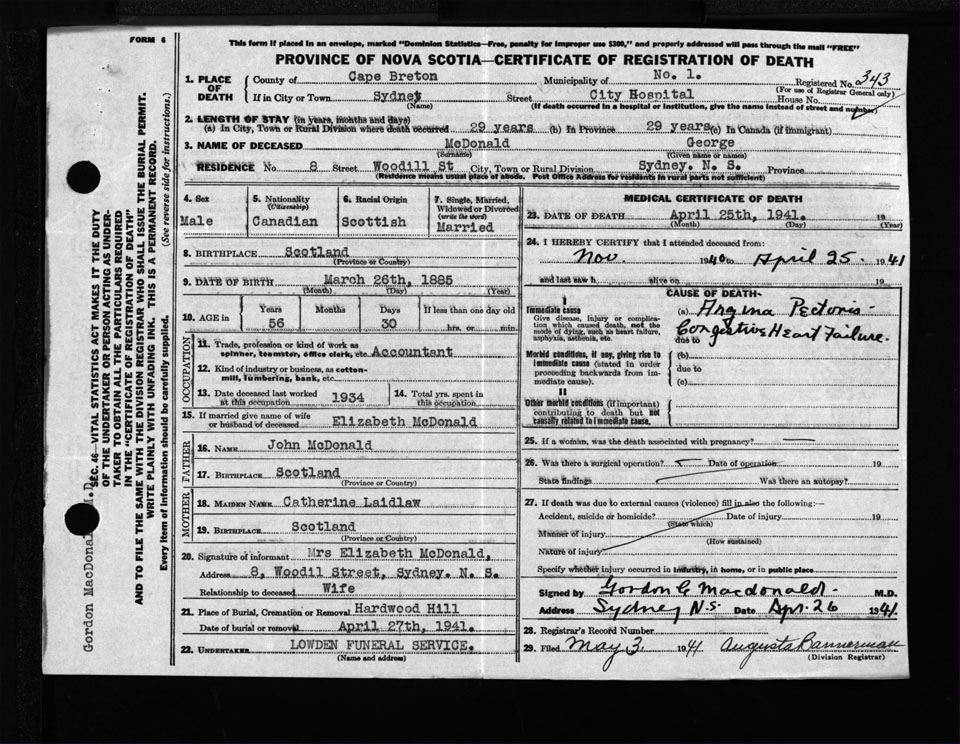 FORM 6
This form if placed in an envelope, marked "Dominion Statistics—Free, penalty for improper use $300," and properly addressed will pass through the mail "FREE"
PROVINCE OF NOVA SCOTIA—CERTIFICATE OF REGISTRATION OF DEATH
1. PLACE OF DEATH
County of Cape Breton Municipality of No. 1. Registered No. 343
(For use of Registrar General only)
If in City or Town Sydney Street City Hospital House No.
(Name) (If death occurred in a hospital or institution, give the name instead of street and number)
2. LENGTH OF STAY (in years, months and days)
(a) In City, Town or Rural Division where death occurred 29 years (b) In Province 29 years (c) In Canada (if immigrant)
3. NAME OF DECEASED McDonald George
(Surname) (Given name or names)
RESIDENCE No. 8 Street Woodill St City, Town or Rural Division Sydney. N. S. Province
(Residence means usual place of abode. Post Office Address for residents in rural parts not sufficient)
4. Sex
Male
5. Nationality
(Citizenship)
Canadian
6. Racial Origin
Scottish
7. Single, Married, Widowed or Divorced
(write the word)
Married
8. BIRTHPLACE Scotland
(Province or Country)
9. DATE OF BIRTH March 26th, 1885
(Month) (Day) (Year)
10. AGE in Years Months Days If less than one day old
56 30 hrs. or min.
OCCUPATION
11. Trade, profession or kind of work as
spinner, teamster, office clerk, etc. Accountant
12. Kind of industry or business, as cotton-
mill, lumbering, bank, etc.
13. Date deceased last worked
at this occupation 1934
14. Total yrs. spent in
this occupation
15. If married give name of wife
or husband of deceased Elizabeth McDonald
FATHER
16. NAME John McDonald
17. BIRTHPLACE Scotland
(Province or Country)
MOTHER
18. MAIDEN NAME Catherine Laidlaw
19. BIRTHPLACE Scotland
(Province or Country)
20. Signature of informant Mrs Elizabeth McDonald,
Address 8, Woodil Street, Sydney. N. S.
Relationship to deceased Wife
21. Place of Burial, Cremation or Removal Hardwood Hill
Date of burial or removal April 27th, 1941.
22. UNDERTAKER LOWDEN FUNERAL SERVICE.
(Name and address)
MEDICAL CERTIFICATE OF DEATH
23. DATE OF DEATH April 25th, 1941. 19
(Month) (Day) (Year)
24. I HEREBY CERTIFY that I attended deceased from:
Nov. 1940 to April 25. 1941
and last saw h alive on 19
CAUSE OF DEATH
I
Immediate cause
Give disease, injury or complica-
tion which caused death, not the
mode of dying, such as heart failure,
asphyxia, asthenia, etc.
(a) Angina Pectoris -
Congestive Heart Failure.
due to
Morbid conditions, if any, giving rise to
immediate cause (stated in order
proceeding backwards from im-
mediate cause).
(b)
due to
(c)
II
Other morbid conditions (if important)
contributing to death but not
causally related to immediate cause.
25. If a woman, was the death associated with pregnancy? —
26. Was there a surgical operation? Date of operation 19
State findings Was there an autopsy?
27. If death was due to external causes (violence) fill in also the following:—
Accident, suicide or homicide? Date of injury 19
(State which)
Manner of injury
(How sustained)
Nature of injury
Specify whether injury occurred in industry, in home, or in public place
Signed by Gordon G Macdonald. M.D.
Address Sydney N.S. Date Apr. 26 1941.
28. Registrar's Record Number
29. Filed May 3 1941 Augusta Bannerman
(Division Registrar)
SEC. 46—VITAL STATISTICS ACT MAKES IT THE DUTY
OF THE UNDERTAKER OR PERSON ACTING AS UNDER-
TAKER TO OBTAIN ALL THE PARTICULARS REQUIRED
IN THE "CERTIFICATE OF REGISTRATION OF DEATH"
AND TO FILE THE SAME WITH THE DIVISION REGISTRAR WHO SHALL ISSUE THE BURIAL PERMIT.
WRITE PLAINLY WITH UNFADING INK. THIS IS A PERMANENT RECORD.
Every item of information should be carefully supplied. (See reverse side for instructions.)
Gordon MacDonald M.D.